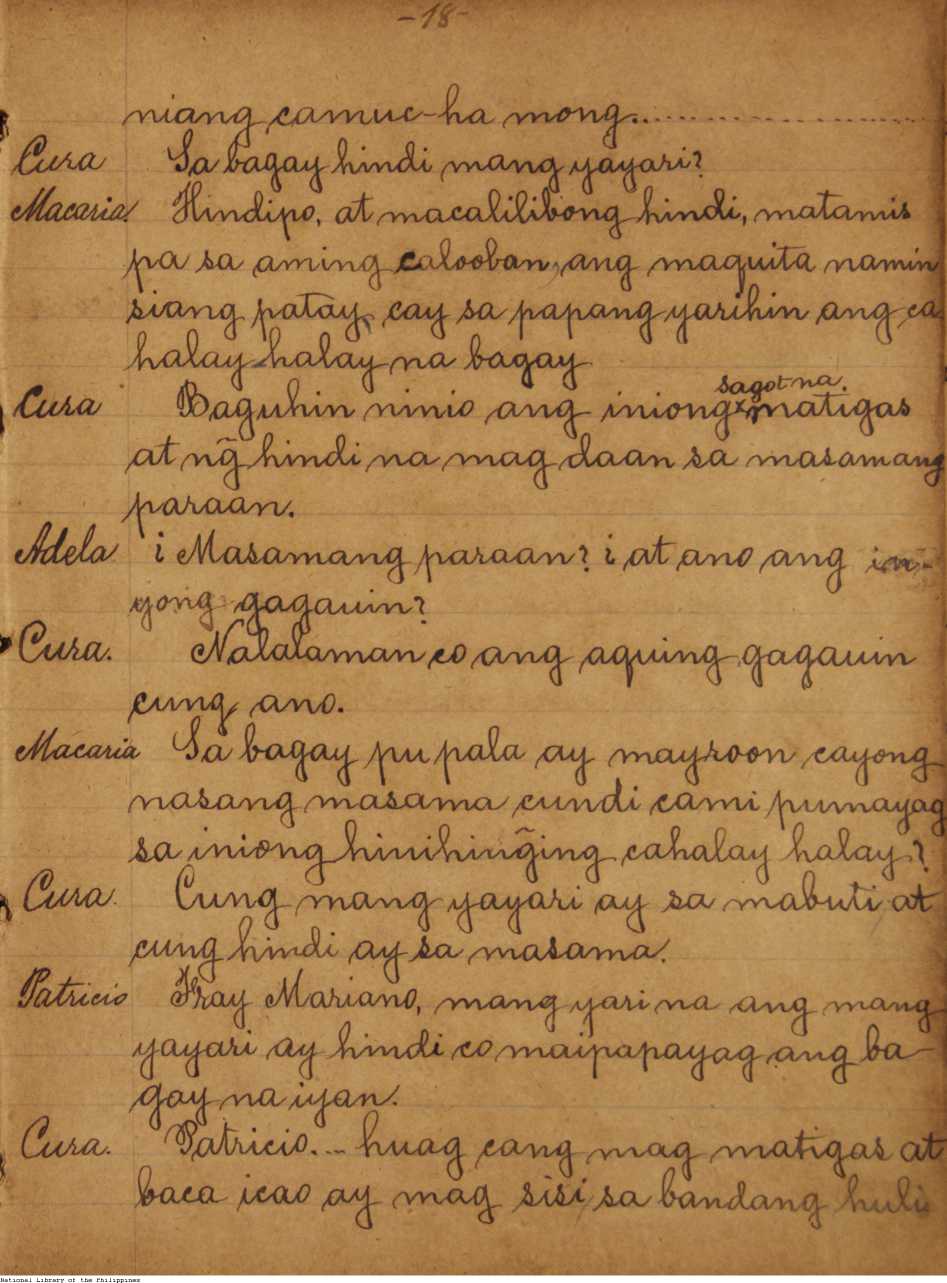 -18-
niang camuc-ha mong..................
Cura Sa bagay hindi mang yayari?
Macaria Hindipo, at macalilibong hindi, matamis
pa sa aming calooban, ang maquita namin
siang patay, cay sa papang yarihin ang ca
halay halay na bagay
sagot na.
Cura Baguhin ninio ang iniong x matigas
at ng̃ hindi na mag daan sa masamang
paraan.
Adela ¡Masamang paraan? ¡at ano ang in-
yong gagauin?
Cura. Nalalaman co ang aquing gagauin
cung ano.
Macaria Sa bagay pu pala ay mayroon cayong
nasang masama cundi cami pumayag
sa iniong hinihing̃ing cahalay halay?
Cura. Cung mang yayari ay sa mabuti at
cung hindi ay sa masama.
Patricio Fray Mariano, mang yari na ang mang
yayari ay hindi co maipapayag ang ba-
gay na iyan.
Cura. Patricio... huag cang mag matigas at
baca icao ay mag sisi sa bandang huli
National Library of the Philippines